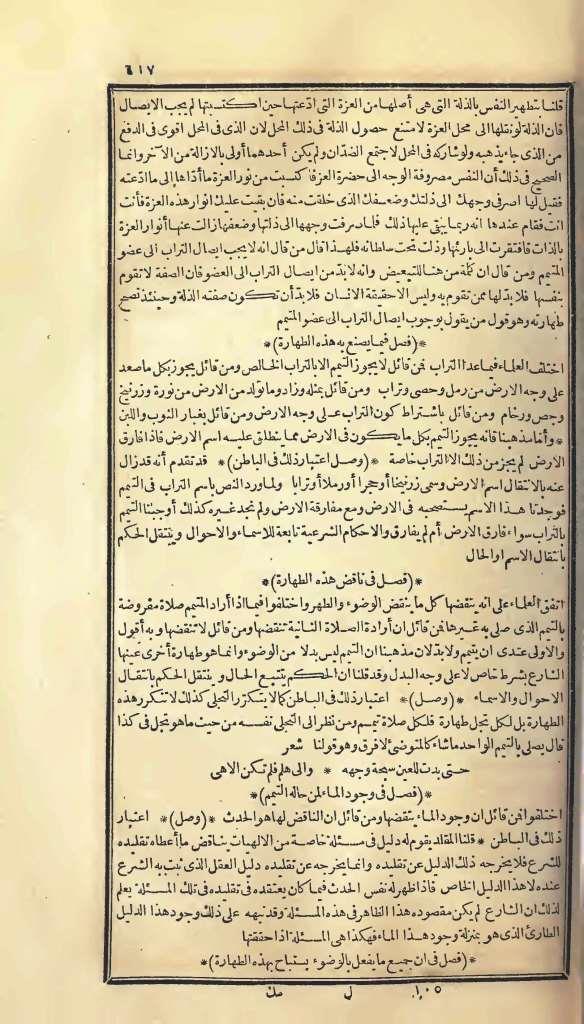 ٦١٧
قلنا بتطهير النفس بالذلة التى هى أصلها من العزة التى ادّعتها حين اكتسبتها لم يجب الايصال
فان الذلة لو نقلها الى محل العزة لامتنع حصول الذلة فى ذلك المحل لان الذى فى المحل اقوى فى الدفع
من الذى جاء يذهبه ولو شاركه فى المحل لاجتمع الضدّان ولم يكن أحدهما أولى بالازالة من الآخر وانما
الصحيح فى ذلك أن النفس مصروفة الوجه الى حضرة العزة فاكتسبت من نور العزة ما أدّاها الى ما ادّعته
فقيل لها اصرفى وجهك الى ذلتك وضعفك الذى خلقت منه فان بقيت عليك انوار هذه العزة فأنت
أنت فقام عندها انه ربما يبقى عليها ذلك فلما صرفت وجهها الى ذلتها وضعفها زالت عنها أنوار العزة
بالذات فافتقرت الى بارئها وذلت تحت سلطانه فلهذا قال من قال انه لا يجب ايصال التراب الى عضو
المتيمم ومن قال ان كلمة من هنا للتبعيض وانه لابدّ من ايصال التراب الى العضو قان الصفة لا تقوم
بنفسها فلا بدّ لها ممن تقوم به وليس الاحقيقة الانسان فلابدّ أن تكون صفته الذلة وحينئذ تصح
طهارته وهو قول من يقول بوجوب ايصال التراب الى عضو المتيمم
*(فصل فيما يصنع به هذه الطهارة)*
اختلف العلماء فيما عدا التراب فمن قائل لا يجوز التيمم الا بالتراب الخالص ومن قائل يجوز بكل ما صعد
على وجه الارض من رمل وحصى وتراب ومن قائل بمثله وزاد وما تولد من الارض من نورة وزرنيخ
وجص ورخام ومن قائل باشتراط كون التراب على وجه الارض ومن قائل بغبار الثوب واللبن
* وأما مذهبنا فانه يجوز التيمم بكل ما يكون فى الارض مما ينطلق عليه اسم الارض فاذا فارق
الارض لم يجز من ذلك الا التراب خاصة *(وصل اعتبار ذلك فى الباطن)* قد تقدم أنه قد زال
عنه بالانتقال اسم الارض وسمى زرنيخا أو حجرا أو رملا أو ترابا ولما ورد النص باسم التراب فى التيمم
فوجدنا هذا الاسم يستصحبه فى الارض ومع مفارقة الارض ولم نجد غيره كذلك أوجبنا التيمم
بالتراب سواء فارق الارض أم لم يفارق والاحكام الشرعية تابعة للاسماء والاحوال وينتقل الحكم
بانتقال الاسم او الحال
*(فصل فى ناقض هذه الطهارة)*
اتفق العلماء على انه ينقضها كل ما ينقض الوضوء والطهر واختلفوا فيما اذا أراد المتيمم صلاة مفروضة
بالتيمم الذى صلى به غيرها فمن قائل ان أرادة الصلاة الثانية تنقضها ومن قائل لا تنقضها وبه أقول
والاولى عندى ان يتيمم ولابدّ لان مذهبنا ان التيمم ليس بدلا من الوضوء وانما هو طهارة أخرى عينها
الشارع بشرط خاص لا على وجه البدل وقد قلنا ان الحكم يتتبع الحال وينتقل الحكم بانتقال
الاحوال والاسماء *(وصل)* اعتبار ذلك فى الباطن كما لا يتكرّر التجلى كذلك لا تتكرر هذه
الطهارة بل لكل تجل طهارة فلكل صلاة تيمم ومن نظر الى التجلى نفسه من حيث ما هو تجل فى كذا
قال يصلى بالتيمم الواحد ما شاء كالمتوضئ لا فرق وهو قولنا شعر
حتى بدت للعين سبحة وجهه * والى هلم فلم تكن الا هى
*(فصل فى وجود الماء لمن حاله التيمم)*
اختلفوا فمن قائل ان وجود الماء ينقضها ومن قائل ان الناقض لها هو الحدث *(وصل)* اعتبار
ذلك فى الباطن * قلنا المقلد يقوم له دليل فى مسئلة خاصة من الالهيات يناقض ما أعطاه تقليده
للشرع فلا يخرجه ذلك الدليل عن تقليده وانما يخرجه عن تقليده دليل العقل الذى ثبت به الشرع
عنده لا هذا الدليل الخاص فاذا ظهر له نفس الحدث فيما كان يعتقده فى تقليده فى تلك المسئلة يعلم
لذلك ان الشارع لم يكن مقصوده هذا الظاهر فى هذه المسئلة وقد نبهه على ذلك وجود هذا الدليل
الطارئ الذى هو بمنزلة وجود هذا الماء فهكذا هى المسئلة اذا حققتها
*(فصل فى ان جميع ما يفعل بالوضوء يستباح بهذه الطهارة)*
١٠٥ ل مك